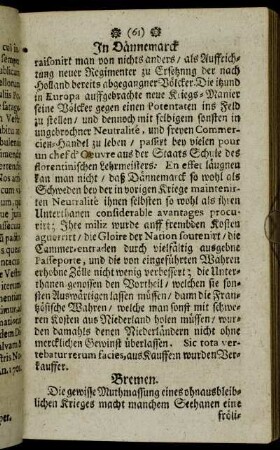 (61)
In Dännemarck
raisonirt man von nichts anders / als Auffrich-
tung neuer Regimenter zu Ersetzung der nach
Holland bereits abgegangner Völcker. Die itzund
in Europa auffgebrachte neue Kriegs-Manier
seine Völcker gegen einen Potentaten ins Feld
zu stellen / und dennoch mit seldigem sonsten in
ungebrochner Neutralité, und freyen Commer-
cien-Handel zu leben / passirt bey vielen pour
un chef d'Oeuvre aus der Staats Schule des
florentinischen Lehrmeisters. En effet läugnen
kan man nicht / daß Dännemarck so wohl als
Schweden bey der in vorigen Kriege maintenir-
ten Neutralité ihnen selbsten so wohl als ihren
Unterthanen considerable avantages procu-
rirt; Ihre miliz wurde auff frembden Kosten
aguerrirt / die Gloire der Nation soutenirt / die
Cammer-entralen durch vielfältig ausgebne
Passeporte, und die von eingeführten Wahren
erhobne Zölle nicht wenig verbessert; die Unter-
thanen genossen den Vortheil / welchen sie son-
sten Auswärtigen lassen müssen / dann die Fran-
tzösische Wahren / welche man sonst mit schwe-
ren Kosten aus Niederland holen müssen / wur-
den damahls denen Niederländern nicht ohne
mercklichen Gewinst überlassen. Sic tota ver-
tebatur rerum facies, aus Kauffern wurden Ver-
kauffer.
Bremen.
Die gewisse Muthmassung eines ohnausbleib-
lichen Krieges macht manchem Seehanen eine
fröli-